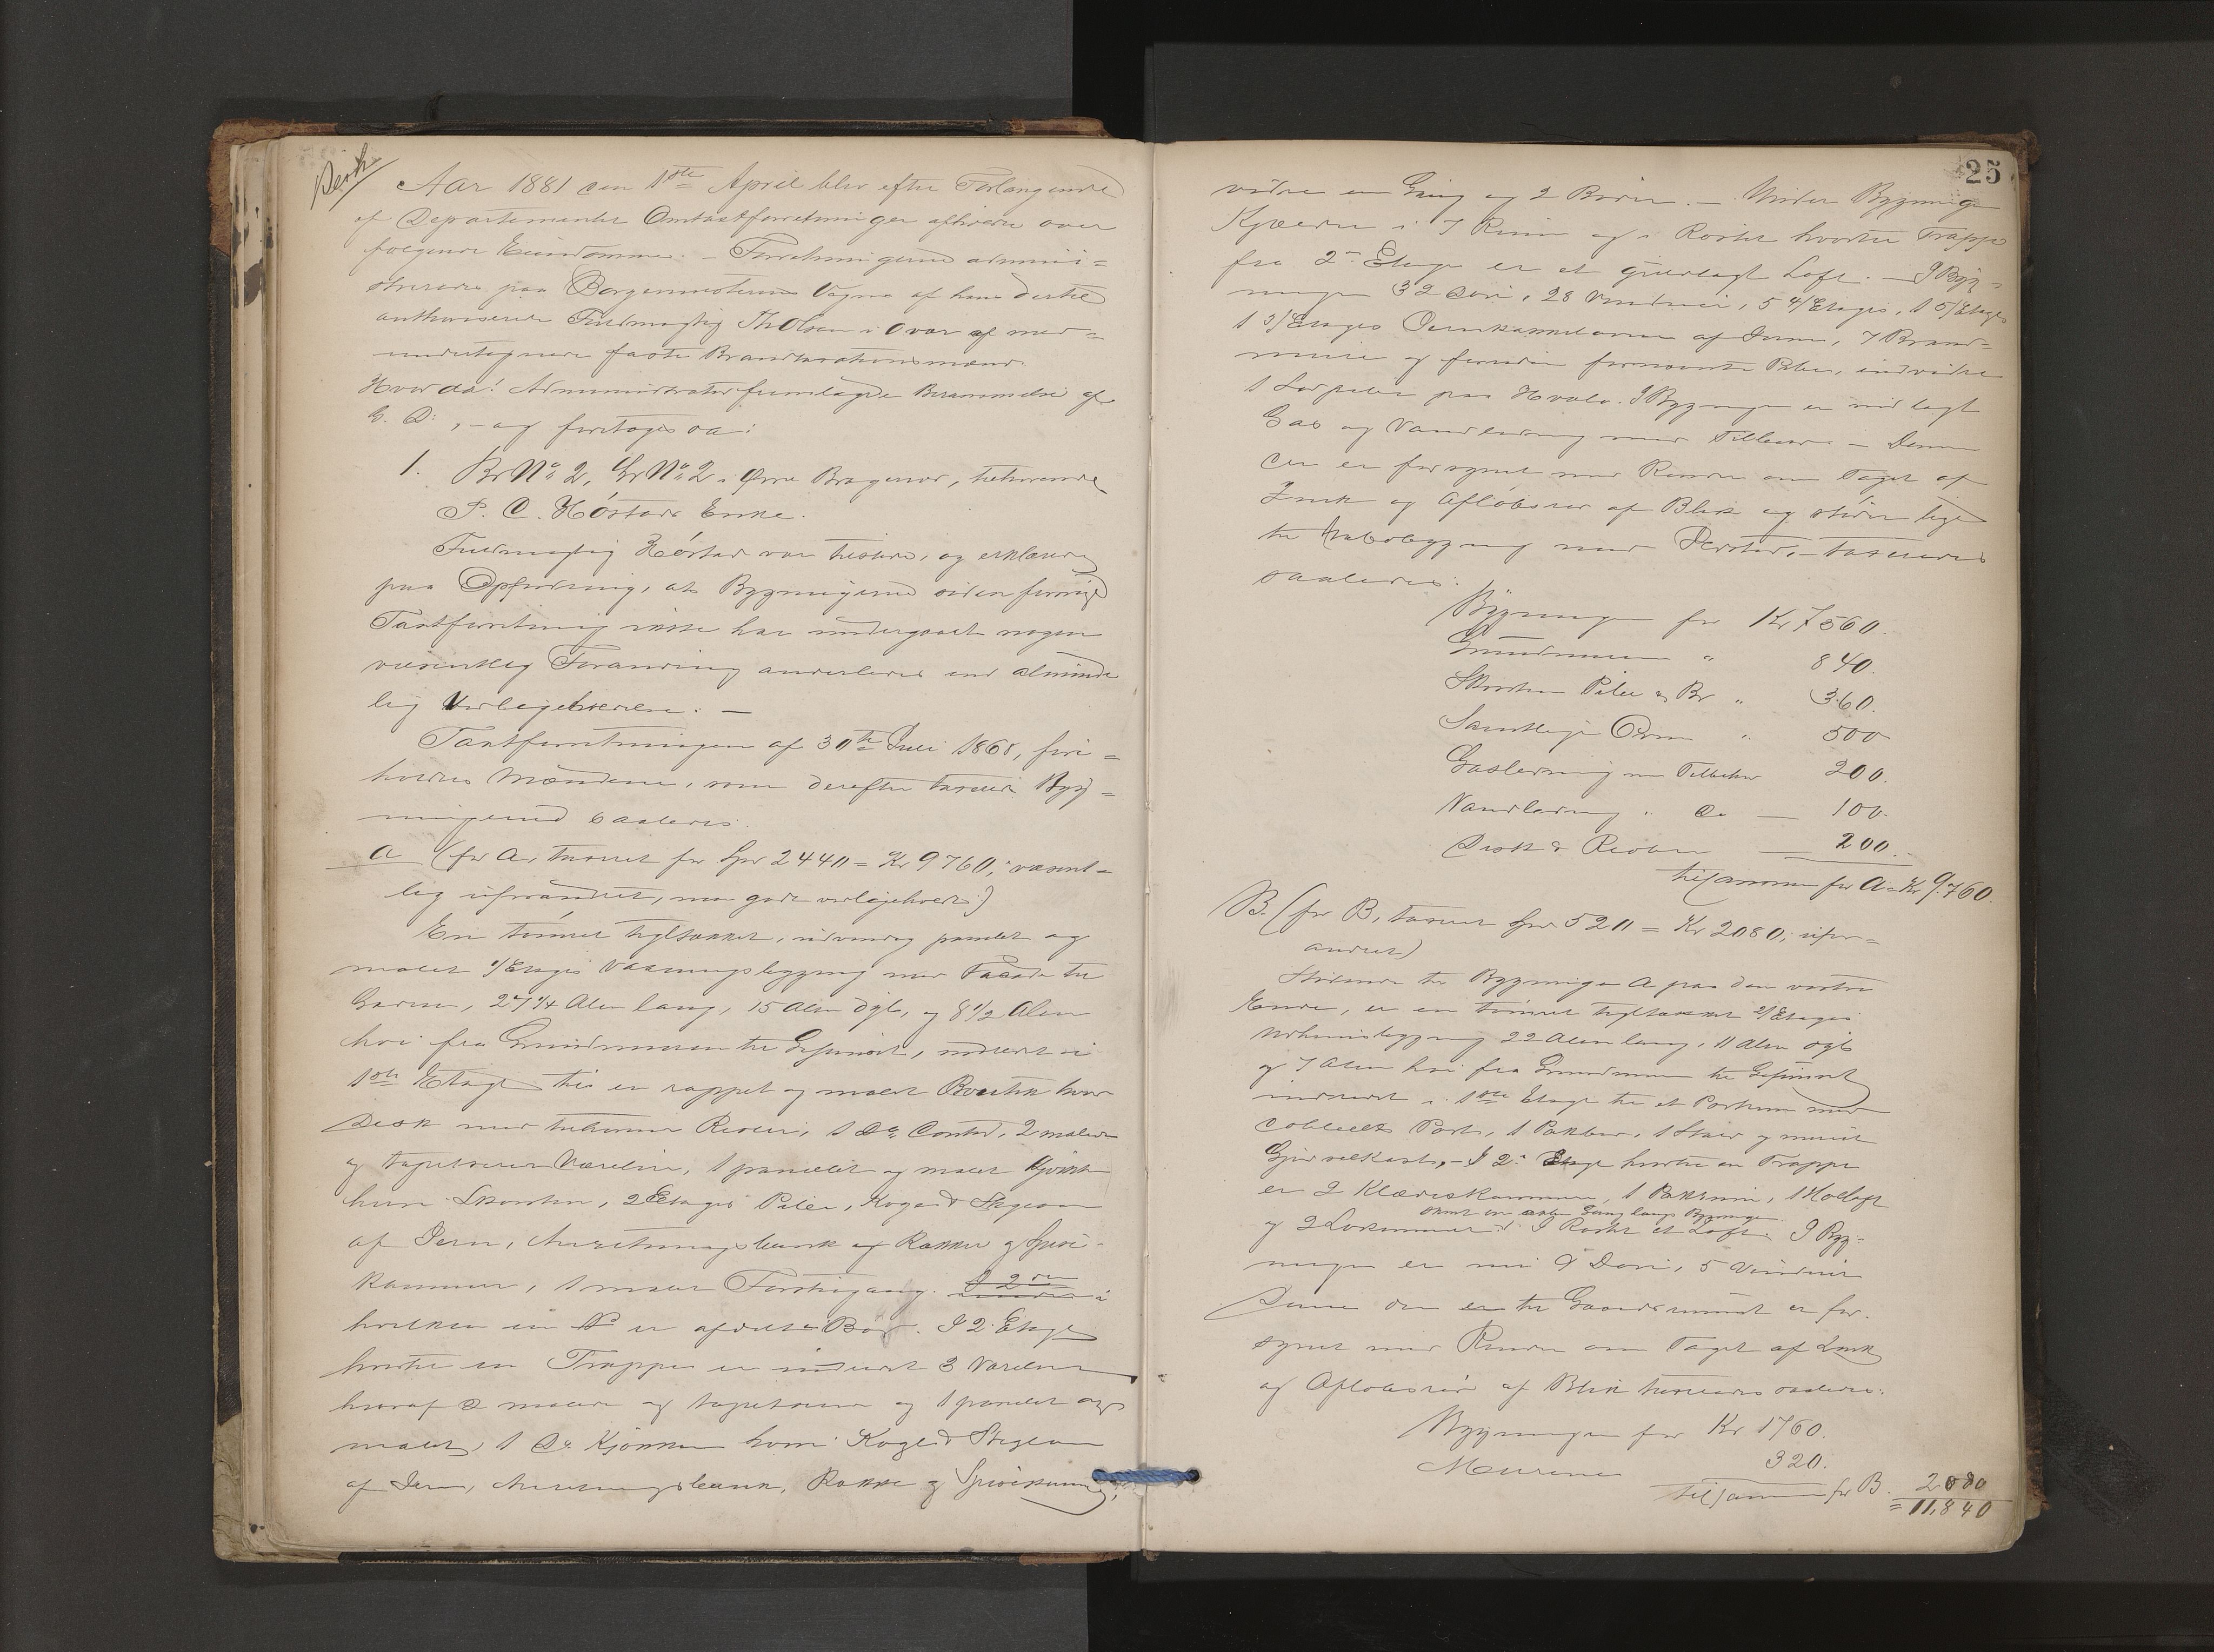 Besk
Aar 1881 den 1ste April blev efter Forlangende
af Departementet Omtaxtforretninger afholdte over
følgende Eiendomme. – Forretningerne admini=
streredes paa Borgermesterens Vegne af hans dertil
authoriserede Fuldmægtig Th Olsen i Overvær af med=
undertegnede faste Brandtaxationsmænd.
Hvorda! Administrator fremlagde Berammelse af
G. D:, – og foretoges da:
1. Br No 2, Gr No 2 i Øvre Bragernes, tilhørende
P. C. Hóstads Enke.
Fuldmægtig Hóstad var tilstede, og erklærede
paa Opfordring, at Bygningerne siden forrige
Taxtforretning ikke har undergaaet nogen
væsentlig Forandring anderledes end alminde
lig Vedligeholdelse. –
Taxtforretningen af 30te Juli 1868, fore=
holdtes Mændene, som derefter taxerede Byg=
ningerne saaledes.
a (før A, taxeret for Spd 2440 = Kr 9760, væsent=
lig uforandret, men godt vedligeholdt)
En tómret tegltækket, udvendig panelet og
malet 2/Etages Vaaningsbygning med Facade til
Gaden, 27 1/4 Alen lang, 15 Alen dyb, og 8 1/2 Alen
høi fra Grundmuren til Gesimset, indredet i
1ste Etage til en rappet og malet Boutik hvor
Disk med tilhørende Reoler, 1 Do Contor, 2 malede
og tapetserede Værelser, 1 panelet og malet Kjøkken
hvori Skorsten, 2 Etages Piber, Koge & Stegeovn
af Jern, Anretningsbænk og Række og Spise-
kammer, 1 malet Forstuegang. I 2den i
hvilken en Do er afdelt Bod. I 2 Etage
hvortil en Trappe er indredet 3 Værelser
hvoraf 2 malede og tapetserede og 1 panelet og
malet, 1 Do Kjøkken hvori Koge & Stegeovn
af Jern, Anretningsbænk, Række og Spisekammer,
25
videre en Gang og 2 Boder. – Under Bygningen
Kjælder i 7 Rum og i Røstet hvortil Trappe
fra 2den Etage er et gulvlagt Loft. – I Byg=
ningen 32 Døre, 28 Vinduer, 5 4/Etages, 1 5/Etages
1 3/Etages Ovnskakkelovne af Jern, 7 Brand=
mure og foruden fornævnte Piber, endvidere
1 Do pibe paa Hvalv. I Bygningen er indlagt
Gas og Vandledning med Tilbehør – Denne
der er forsynet med Render om Taget af
Zink og Afløbsrør af Blik og støder lige
til Nabobygning med , – taxeredes
saaledes:
Bygningen for Kr 7560.
Grundmuren " 840.
Skorsten Piber & Br " 360.
Samtlige Ovne " 500
Gasledning m Tilbehør 200.
Vandledning " Do — 100.
Disk & Reoler — 200.
tilsammen for A = Kr 9.760.
B. (før B, taxeret Spd 520 = Kr 2080; ufor=
andret)
Stødende til Bygningen A paa den vestre
Ende, er en tømret tegltækket 2/Etages
Udhusbygning 22 Alen lang, 11 Alen dyb
og 7 Alen høi fra Grundmuren til Gesimset
indredet i 1ste Etage til et Portrum med
dobbelt Port, 1 Pakbod, 1 Stald og muret
Gjødselkast, – I 2den Etage hvortil en Trappe
er 2 Klædeskammere, 1 Pakrum, 1 Høeloft
samt en aaben Gang langs Bygningen
og 2 Lokummer. I Røstet et Loft. I Byg-
ningen er nu 9 Døre, 5 Vinduer
Denne der er til Gaards muret er for-
synet med Render om Taget af Zink
og Afløbsrør af Blik taxeredes saaledes:
Bygningen for Kr 1760.
Murene 320.
tilsammen for B. 2080
= 11,840